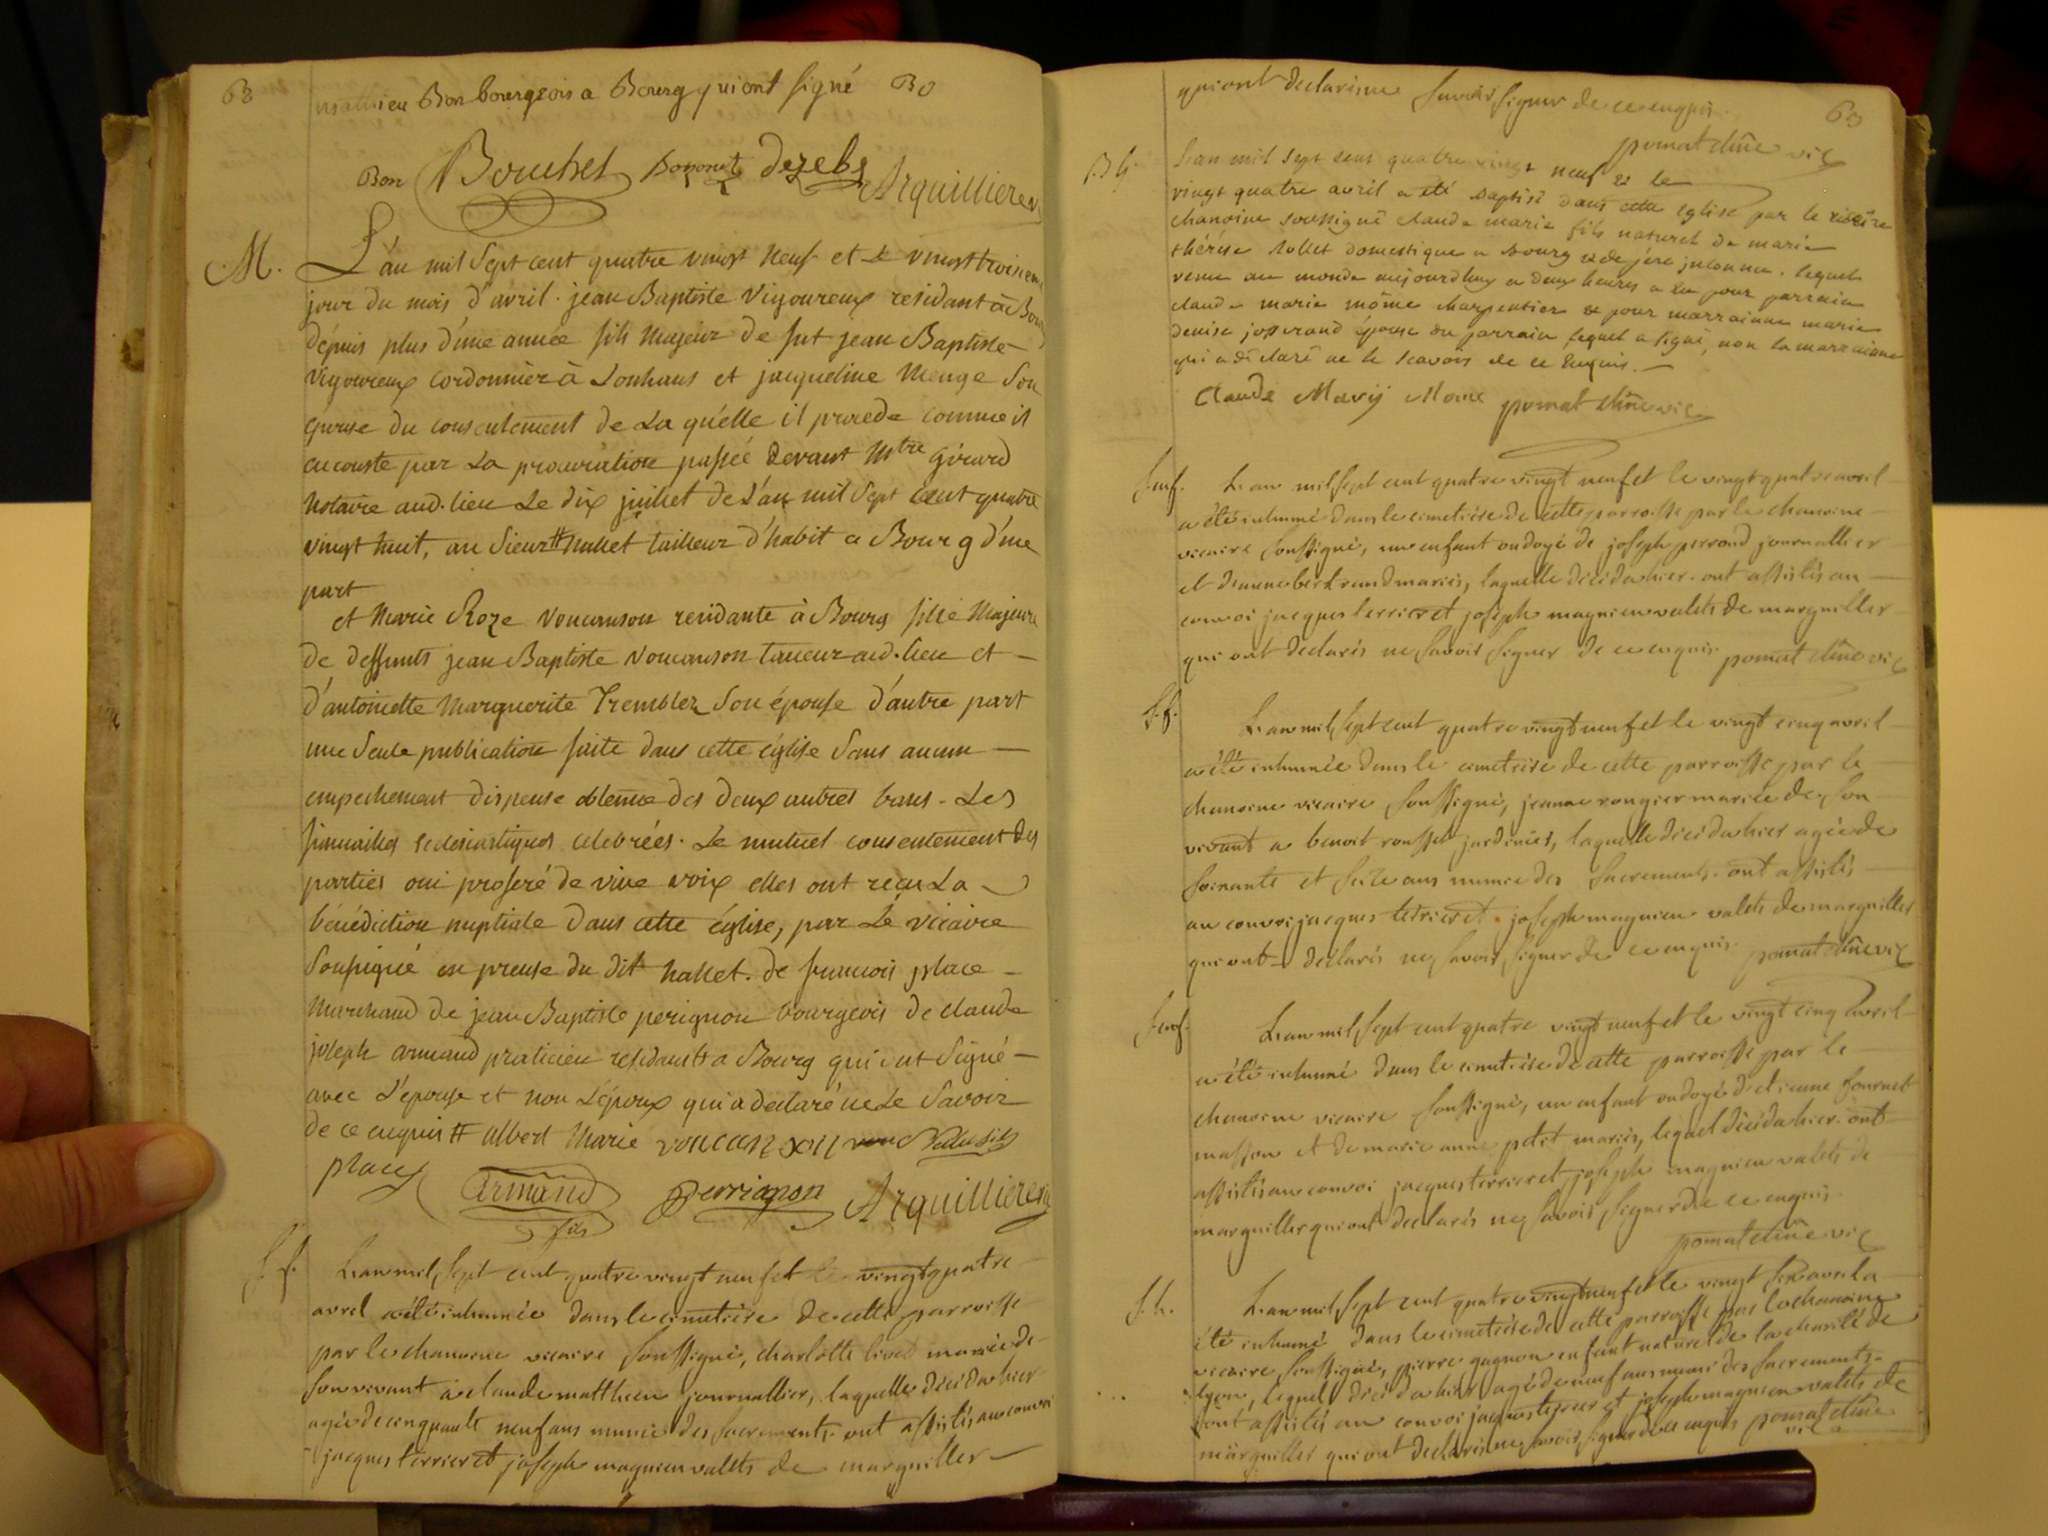 63
mathieu Bon bourgeois a Bourg qui ont signé
Bon Bouchet Dezebs Arquilliere v
M.
L'an mil sept cent quatre vingt neuf et le vingt troisieme
jour du mois d'avril. jean Baptiste Vigoureux residant à Bourg
dépuis plus d'une année fils majeur de fut jean Baptiste
Vigoureux cordonnier à Louhans et jacqueline Menge son
épouse du consentement de La quelle il procede comme il
en conste par La procuration passée devant Mtre Girard
Notaire aud. lieu Le dix juillet de L'an mil sept cent quatre
vingt huit, au sieur # Nallet tailleur d'habit a Bourg d'une
part
et Marie Roze Voucanson residante à Bourg fille Majeure
de deffunts jean Baptiste Voucanson taneur aud. lieu et
d'antoinette Marguerite Tremblez son épouse d'autre part
une seule publication faite dans cette église sans aucun
empechement dispense obtenue des deux autres bans. Les
fiancailles eclesiastiques celebrées. Le mutuel consentement des
parties oui proferé de vive voix elles ont reçu La
bénédiction nuptiale dans cette église, par Le vicaire
soussigné en presence du dit Nallet. de francois place
Marchand de jean Baptiste perignon bourgeois de claude
joseph armand praticien residants a Bourg qui ont signé
avec L'épouse et non L'époux qui a declaré ne Le savoir
de ce enquis # albert Marie voucanson
place Armand fils Perrignon Arquilliere vic
S. f.
L'an mil sept cent quatre vingt neuf et le vingt quatre
avril a été inhumée dans le cimetiére de cette parroisse
par le chanoine vicaire soussigné, charlotte livet mariée de
son vivant à claude matthieu journallier, laquelle décéda hier
agée de cinquante neuf ans munie des sacrements. ont assistés au convoi
jacques terrier et joseph magnien valets de marguiller
63
qui ont declarés ne savoir signer de ce enquis.
pomat chne vic
B. G.
L'an mil sept cent quatre vingt neuf et le
vingt quatre avril a été baptisé dans cette église par le vicaire
chanoine soussigné claude marie fils naturel de marie
thérèse Nollet domestique a Bourg et de père inconnu. lequel
venu au monde aujourdhuy a deux heures a eu pour parrain
claude marie môme charpentier et pour marrainne marie
denise josserand épouse du parrain lequel a signé, non la marrainne
qui a déclaré ne le scavoir de ce enquis.
Claude Mary Mome pomat chne vic
S. enf.
L'an mil sept cent quatre vingt neuf et le vingt quatre avril
a été inhumé dans le cimetiére de cette parroisse par le chanoine
vicaire soussigné, un enfant ondoyé de joseph perrond journallier
et d'anne bertrand mariés, laquelle décéda hier. ont assistés au
convoi jacques terrier et joseph magnien valets de marguiller
qui ont declarés ne savoir signer de ce enquis pomat chne vic
S. f.
L'an mil sept cent quatre vingt neuf et le vingt cinq avril
a été inhumée dans le cimetiére de cette parroisse par le
chanoine vicaire soussigné, jeanne rongier mariée de son
vivant a benoit rousset jardinier, laquelle décéda hier agée de
soixante et seize ans munie des sacrements. ont assistés
au convoi jacques terrier et joseph magnien valets de marguiller
qui ont declarés ne savoir signer de ce enquis. pomat chne vic
S. enf.
L'an mil sept cent quatre vingt neuf et le vingt cinq avril
a été inhumé dans le cimetiére de cette parroisse par le
chanoine vicaire soussigné, un enfant ondoyé d'etienne fournet
masson et de marie anne petit mariés, lequel décéda hier. ont
assistés au convoi jacques terrier et joseph magnien valets de
marguiller qui ont declarés ne savoir signer de ce enquis.
pomat chne vic
S. h.
L'an mil sept cent quatre vingt neuf et le vingt six avril a
été inhumé dans le cimetiére de cette parroisse par le chanoine
vicaire soussigné, pierre gagnon enfant naturel de la charité de
lyon, lequel décéda hier agé de neuf ans muni des sacrements.
ont assistés au convoi jacques terrier et joseph magnien valets de
marguiller qui ont declarés ne savoir signer de ce enquis pomat chne
vic